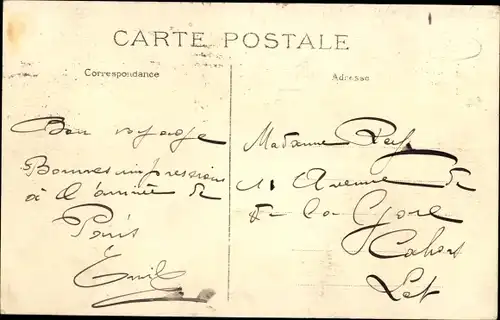 CARTE POSTALE
Correspondance
Adresse
Bon voyage
Bonnes impressions
à l'arrivée de
Paris
Emile
Madame
11 Avenue de
de la Gare
Cahors
Lot